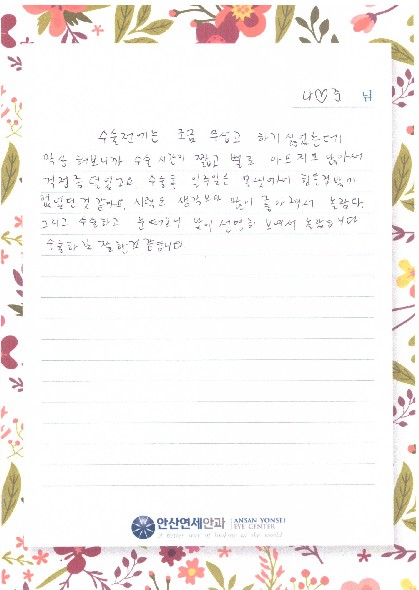 나♡준 님
수술전에는 조금 무섭고 하기 싫었는데
막상 해보니까 수술 시간이 짧고 별로 아프지도 않아서
걱정을 덜었고요 수술후 일주일은 힘든것 밖에
없었던 것 같아요. 시력도 생각보다 많이 좋아져서 놀랐다.
그리고 수술하고 많이 선명히 보여서 놀랐습니다
수술하길 잘한것 같습니다
안산연세안과 ANSAN YONSEI
EYE CENTER
A better way of looking at the world